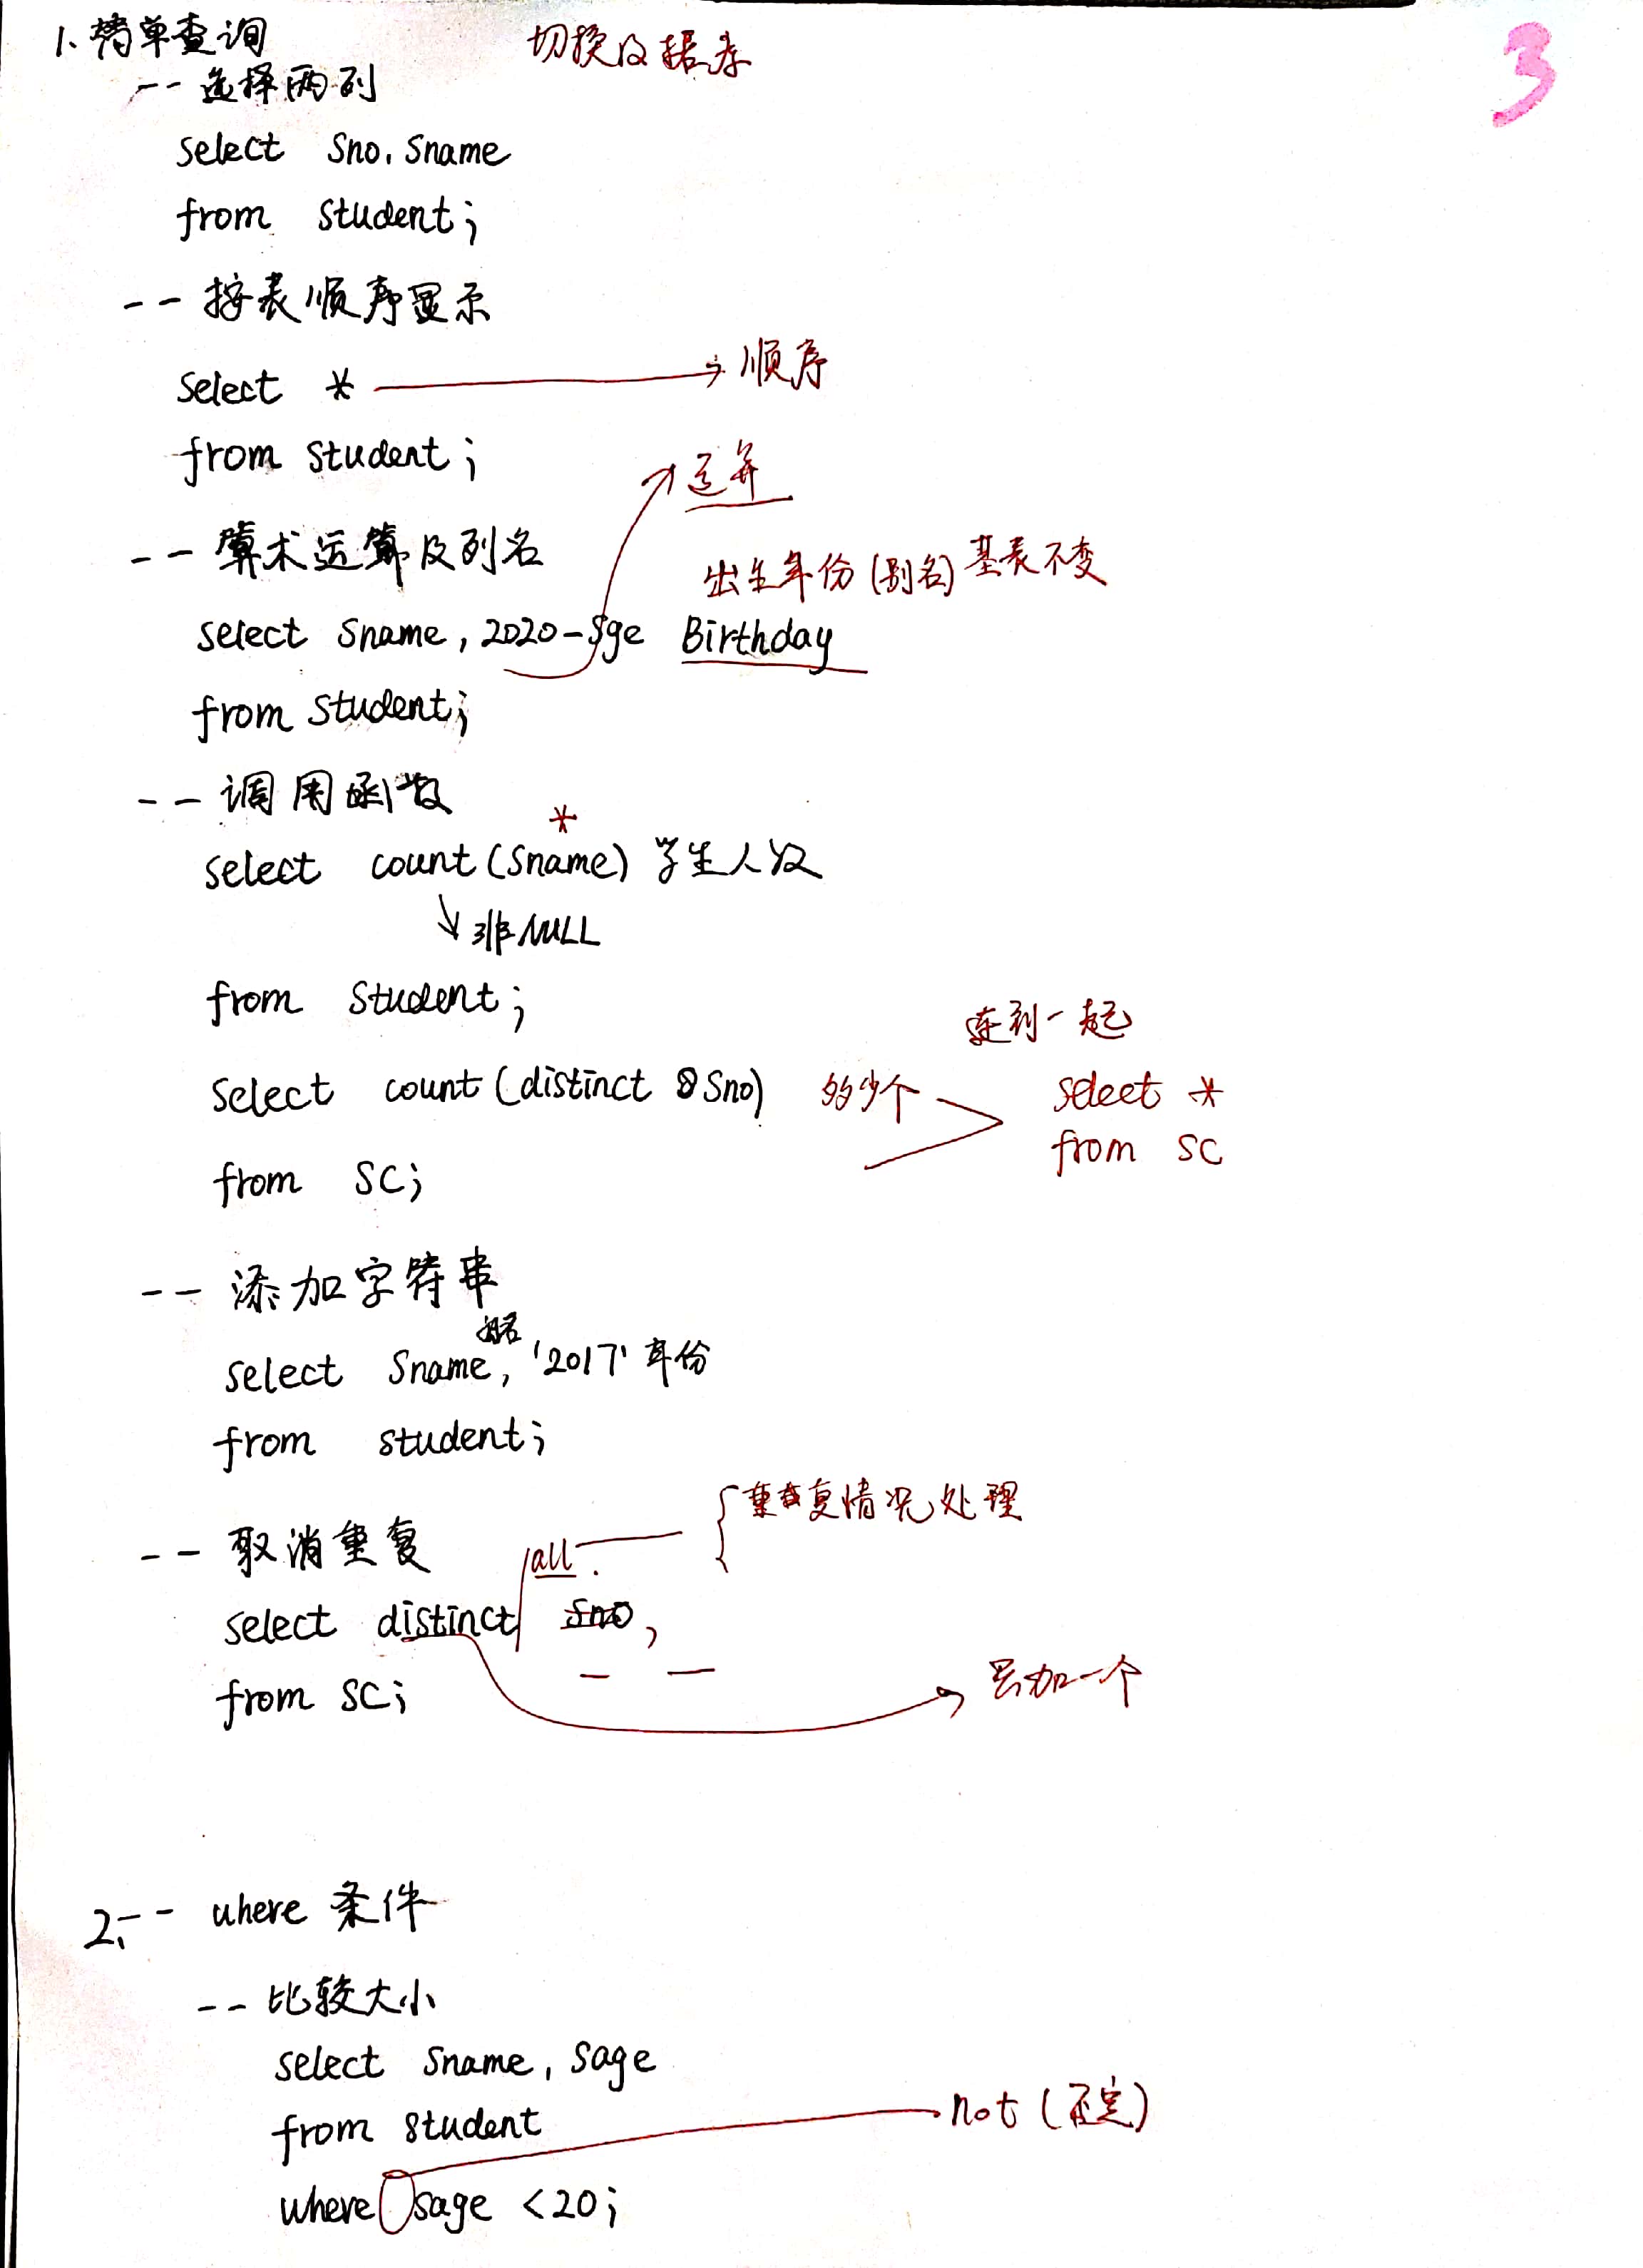 1、简单查询
切换数据库
3
-- 选择两列
select Sno, Sname
from Student;
-- 按表顺序显示
select * → 顺序
from Student;
运算
-- 算术运算及列名
出生年份(别名) 基表不变
select Sname, 2020-Sge Birthday
from Student;
-- 调用函数
*
select count(Sname) 学生人数
↘ 非NULL
from Student;
连到一起
select count(distinct Sno) 多少个
select *
from SC
from SC;
-- 添加字符串
select Sname, '2017' 年份
from student;
重复情况处理
-- 取消重复
all
select distinct Sno,
from SC; 只加一个
2、-- where 条件
-- 比较大小
select Sname, Sage
from student
not (否定)
where sage <20;